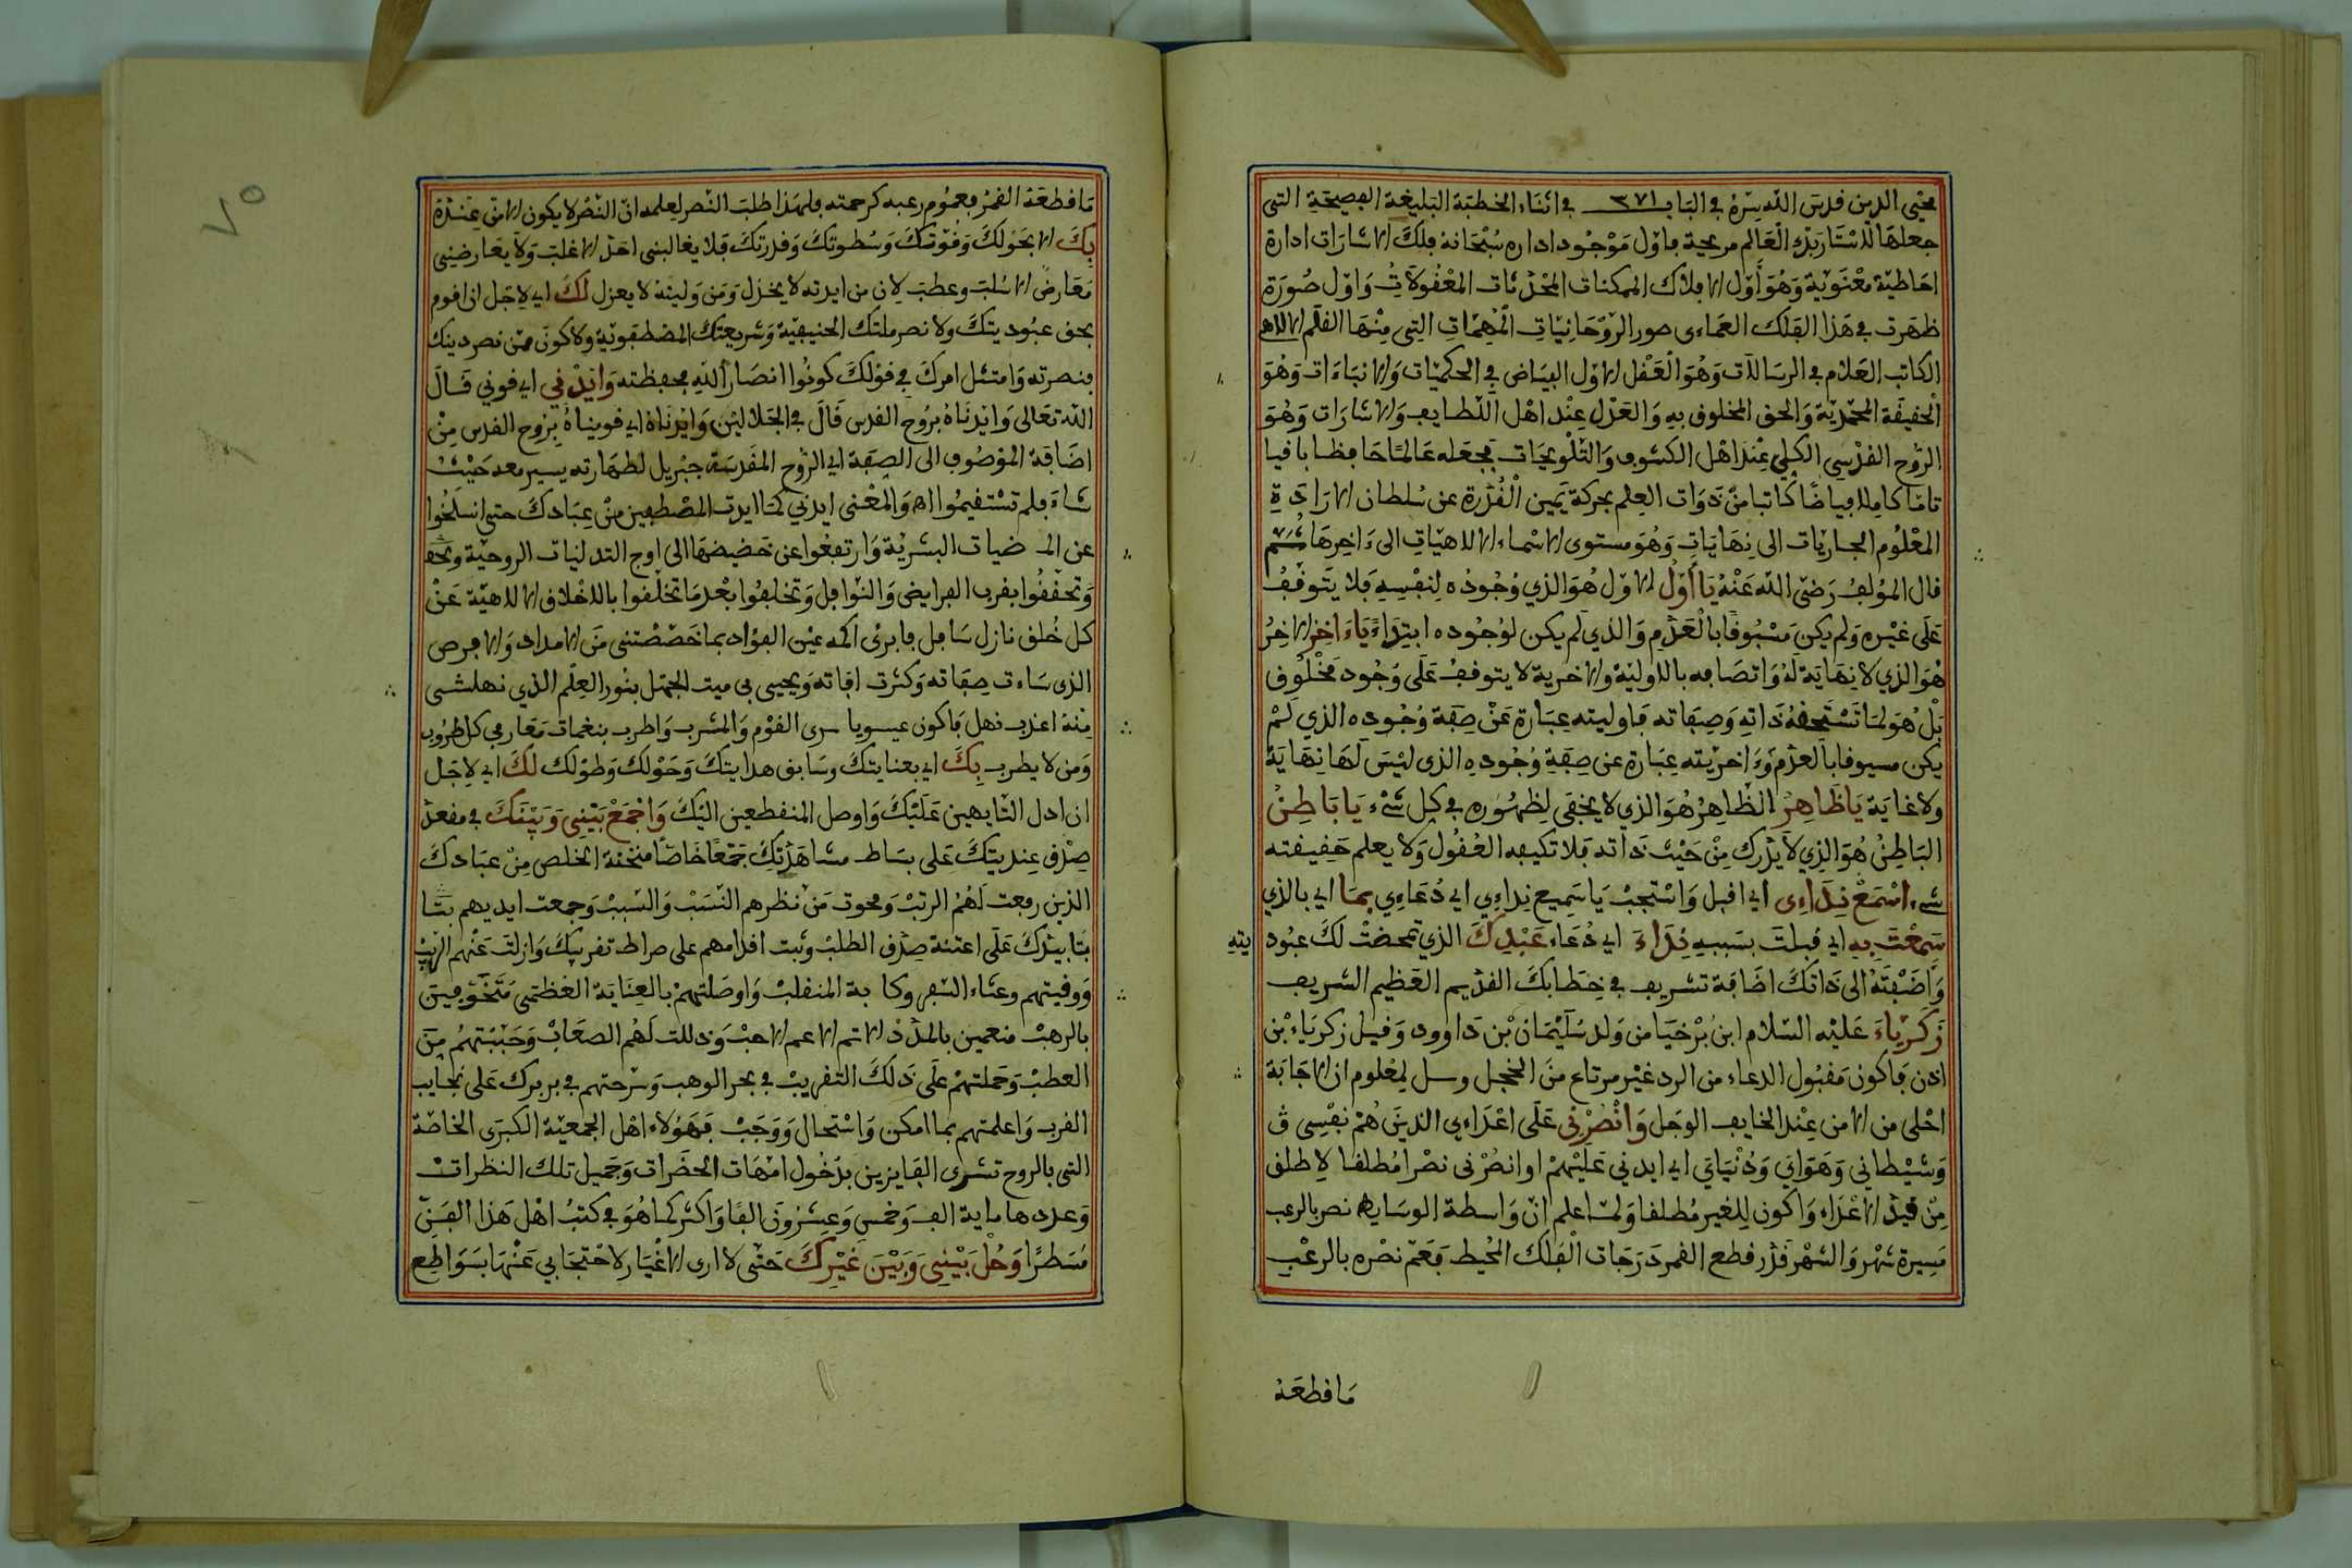 محيي الدين قدس الله سره في الباب ٣٧١ في اثناء الخطبة البليغة الفصيحة التي
جعلها الاستاربك العالم مريحة فاول موجود اداره سبحانه فلك الاشارات ادارة
احاطية معنوية وهو أول الافلاك الممكنات المحدثات المعقولات واول صورة
ظهرت في هذا الفلك العماءى صور الروحانيات المهيمات التي منها القلم الالاهي
الكاتب العلام في الرسالات وهو العقل الاول الفياض في الحكميات والانباءات وهو
الحقيقة المحمدية والحق المخلوق به والعدل عند اهل اللطايف والاشارات وهو
الروح القدسي الكلي عند اهل الكشوف والتلويحات فجعله عالما حافظا باقيا
تاما كاملا فياضا كاتبا من دوات العلم بحركة يمين القدرة عن سلطان الارادة
المعلوم الجاريات الى نهايات وهو مستوى الاسماء الالاهيات الى ءاخرها ثم
قال المؤلف رضي الله عنه يا أول الاول هو الذي وجوده لنفسه فلا يتوقف
على غيره ولم يكن مسبوقا بالعدم والذي لم يكن لوجوده ابتداء ياءاخر الاخر
هو الذي لا نهاية له واتصافه بالاولية والاخرية لا يتوقف على وجود مخلوق
بل هو لما تستحقه ذاته وصفاته فاوليته عبارة عن صفة وجوده الذي لم
يكن مسبوقا بالعدم وءاخريته عبارة عن صفة وجوده الذي ليس لها نهاية
ولا غاية يا ظاهر الظاهر هو الذي لا يخفى لظهوره في كل شيء يا باطن
الباطن هو الذي لا يدرك من حيث ذاته فلا تكيفه العقول ولا يعلم حقيقته
شيء اسمع نداءى اي اقبل واستجب يا سميع نداءي اي دعاءي بما اي بالذي
سمعت به اي قبلت بسببه نداء اي دعاء عبدك الذي تمحضت لك عبوديته
واضفته الى ذاتك اضافة تشريف في خطابك القديم العظيم الشريف
زكرياء عليه السلام ابن برخيا من ولد سليمان بن داوود وقيل زكرياء بن
اذن فاكون مقبول الدعاء من الرد غير مرتاع من الخجل وسل لمعلوم ان الاجابة
احلى من الامن عند الخايف الوجل وانصرني على اعداءي الذين هم نفسي و
وشيطاني وهواي ودنياي اي ايدني عليهم او انصرني نصرا مطلقا لاطلق
من قيد الاعداء واكون للغير مطلقا ولما اعلم ان واسطة الوسايط نصر بالرعب
مسيرة شهر والشهر قدر قطع القمر درجات الفلك المحيط فعم نصره بالرعب
ما قطعه
ما قطعه القمر فعموم رعبه كرحمته فلهذا طلب النصر لعلمه ان النصر لا يكون الا من عنده
بك الا بحولك وقوتك وسطوتك وقدرتك فلا يغالبني احد الا غلب ولا يعارضني
معارض الا سلب وعطب لان من ايدته لا يخذل ومن وليته لا يعزل لك اي لاجل ان اقوم
بحق عبوديتك ولانصر ملتك الحنيفية وشريعتك المصطفوية ولاكون ممن نصر دينك
فنصرته وامتثل امرك في قولك كونوا انصار الله فحفظته وايدني اي قوني قال
الله تعالى وايدناه بروح القدس قال في الجلالين وايدناه اي قويناه بروح القدس من
اضافة الموصوف الى الصفة اي الروح المقدسة جبريل لطهارته يسير معه حيث
شاء فلم تستقيموا اه والمعنى ايدني كما ايدت المصطفين من عبادك حتى انسلخوا
عن البشرية وارتفعوا عن حضيضها الى اوج التدليات الروحية
وتحققوا بقرب الفرايض والنوافل وتخلقوا بعد ما تخلقوا بالاخلاق الالاهية عن
كل خلق نازل سافل فابرئ اكمه عين الفؤاد بما خصصتني من الامداد والابرص
الذي ساءت صفاته وكثرت افاته ويحيى بي ميت الجهل بنور العلم الذي نهلتني
منه اعذب نهل فاكون عيسويا سرى القوم والمشرب واطرب بنغمات معارفي كل طروب
ومن لا يطرب بك اي بعنايتك وسابق هدايتك وحولك وطولك لك اي لاجل
ان ادل التايهين عليك واوصل المنقطعين اليك واجمع بيني وبينك في مقعد
صدق عنديتك على بساط مشاهدتك جمعا خاصا منحته الخلص من عبادك
الذين رفعت لهم الرتب ومحوت من نظرهم النسب والسبب وجمعت ايديهم
بتاييدك على اعنة صدق الطلب وثبت اقدامهم على صراط تقريبك وازلت عنهم الريب
ووقيتهم وعثاء السفر وكابة المنقلب واوصلتهم بالعناية العظمى
بالرهب منعمين بالملذذ الاتم الاعم الاحب وذللت لهم الصعاب وجنبتهم من
العطب وحملتهم على ذلك التقريب في بحر الوهب وسرحتهم في بر برك على نجايب
القرب واعلمتهم بما امكن واستحال ووجب فهؤلاء اهل الجمعية الكبرى الخاصة
التي بالروح تشرى الفايزين بدخول امهات الحضرات وجميل تلك النظرات
وعددها ماية الف وخمس وعشرون الفا واكثر كما هو في كتب اهل هذا الفن
مسطرا وحل بيني وبين غيرك حتى لا ارى الاغيار لاحتجابي عنها بسواطع
٧٥